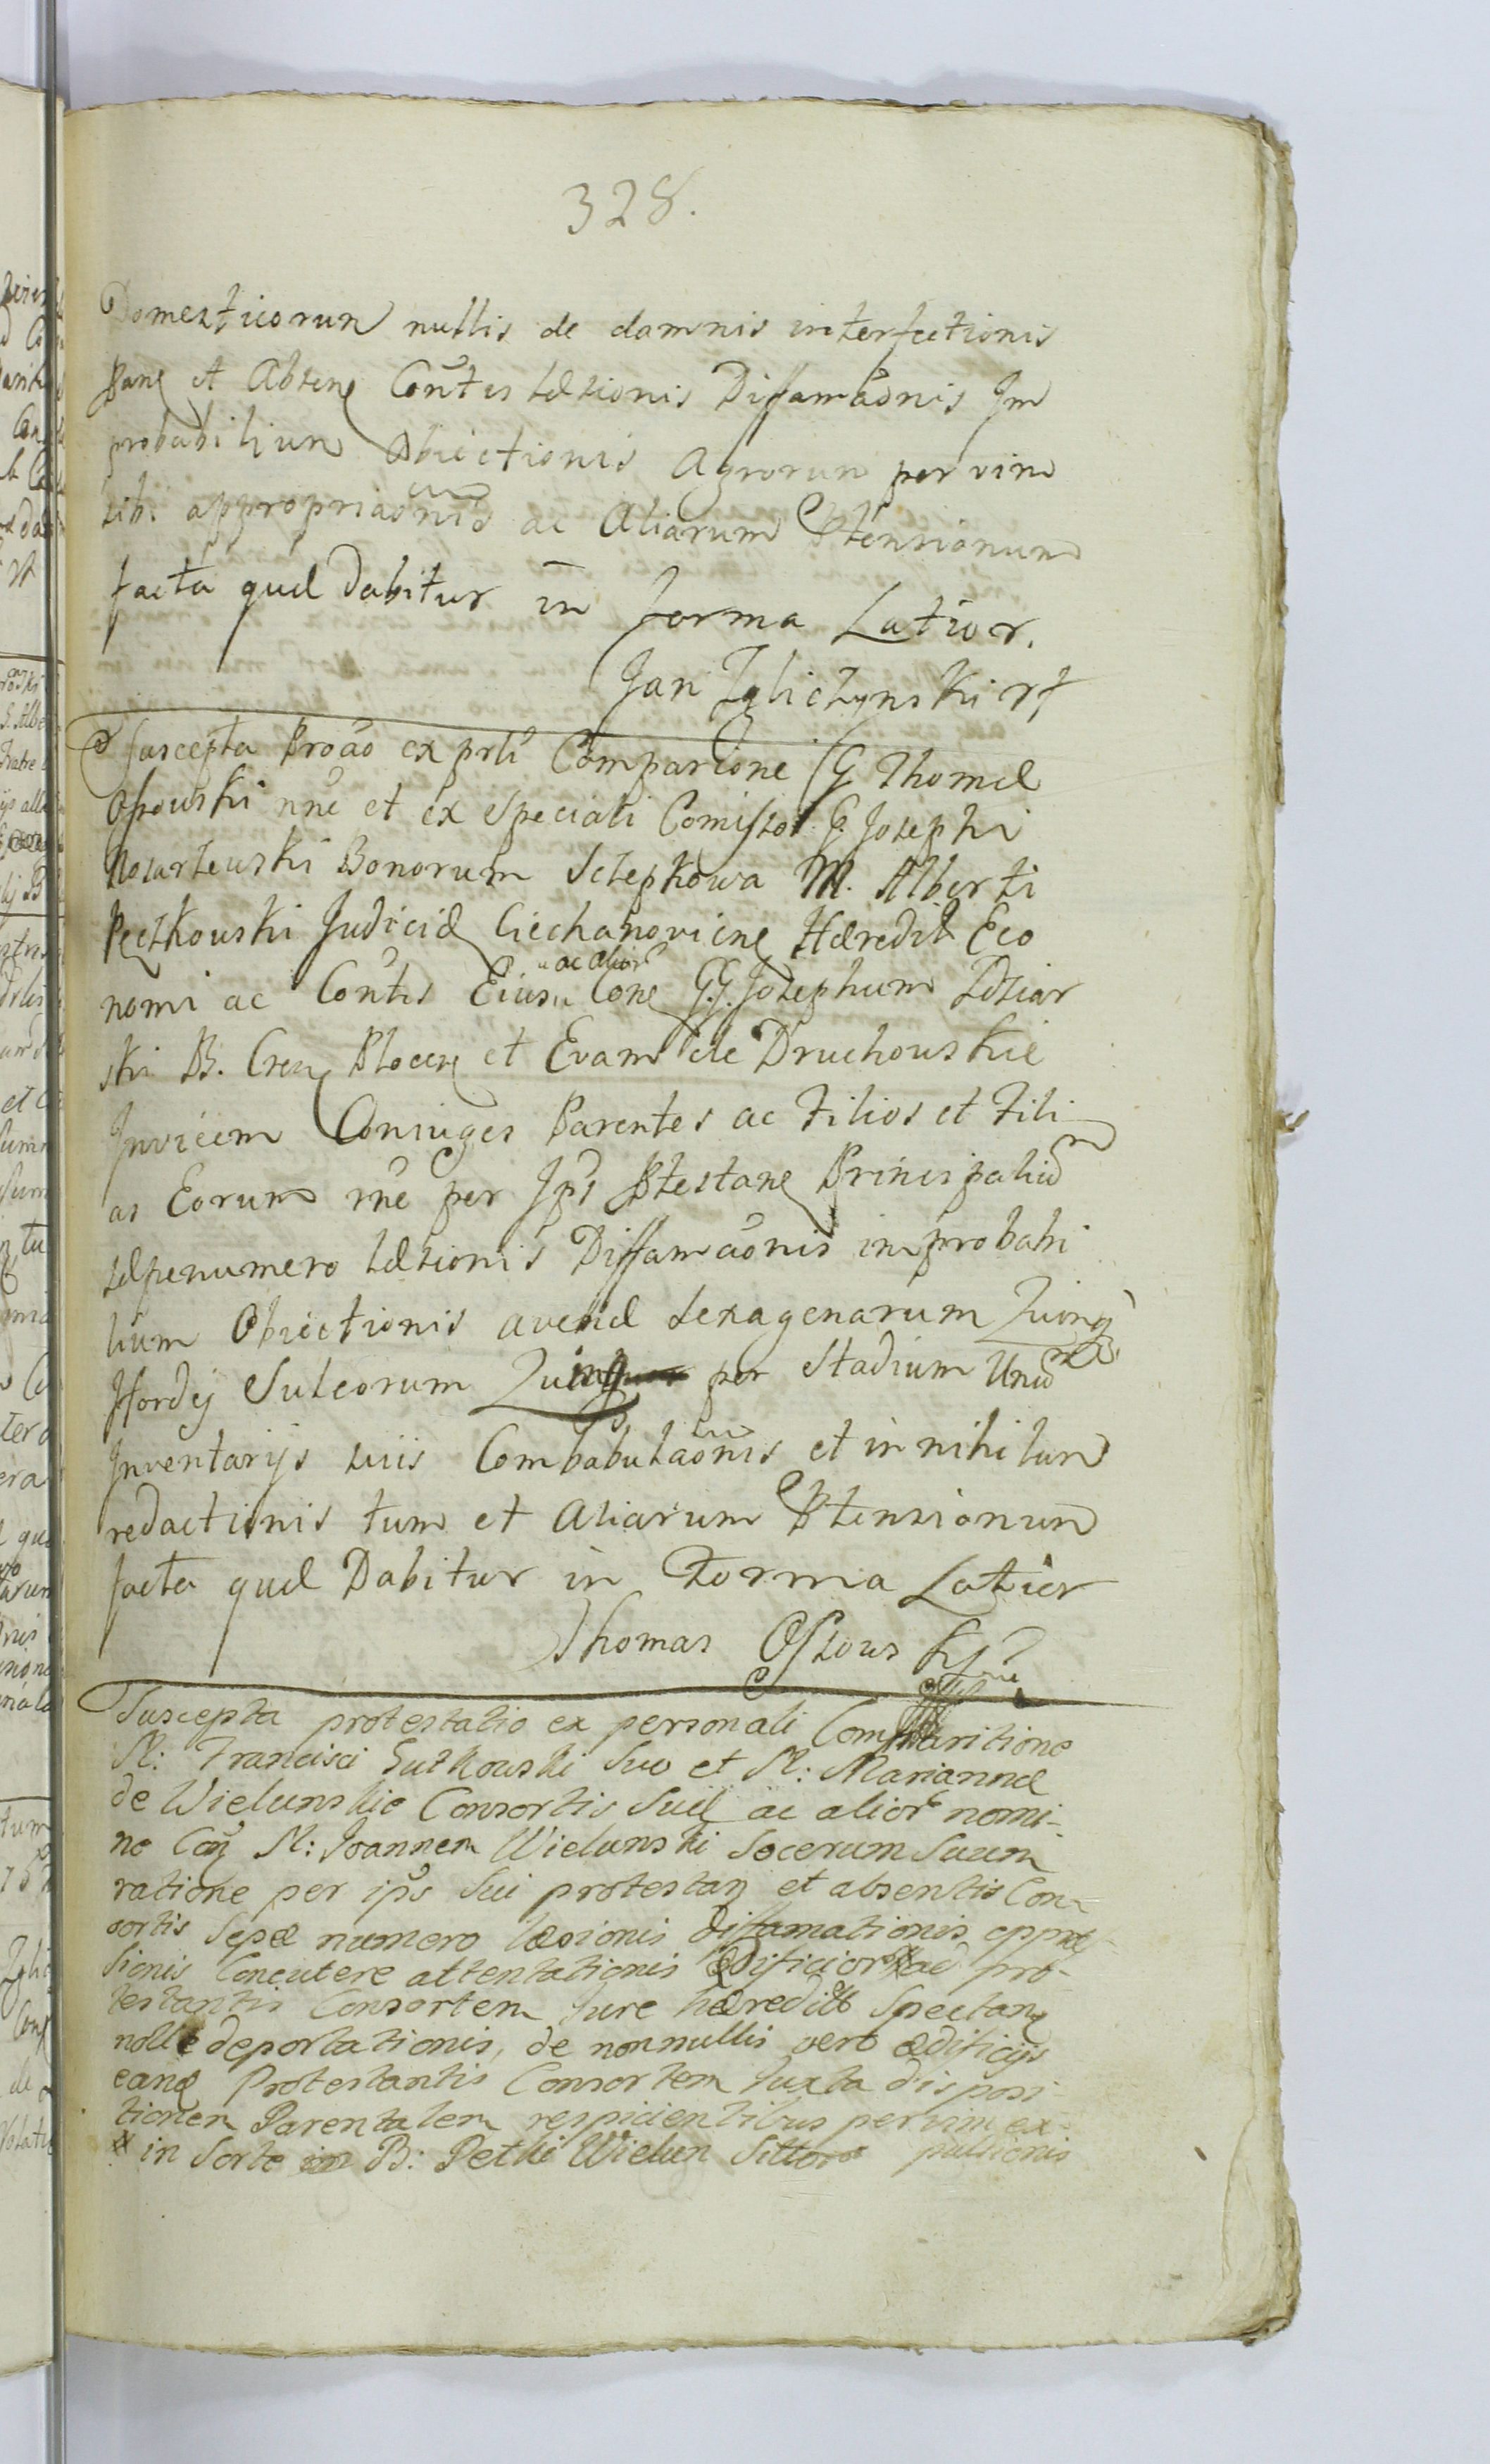 328.
Domesticorum nullis de damnis interfectionis
Ptane et Absene Contis læsionis Diffamaonis Im
probabilium Obiectionis Agrorum per vim
sibi appropriaonis ac Aliarum Ptensionum
facta quæ Dabitur in forma Latior.
Jan Zglictynski
Suscepta Proao ex prli Comparione G Thomæ
Ossowski nne et ex speciali Comisso G. Josephi
Bonorum Sctepkowa M. Alberti
Pęczkouski Judicid Ciechanoviene Hæredit Eco
nomi ac Contis Eius
ac alior
Cone G.G. Josephum
ski B. Cren Plocen et Evam de Druchouskie
Invicem Coniuges Parentes ac Filios et Fili
as Eorum rne per Ips Ptestane Principalium
sæpenumero læsionis Diffamaonis improbabi
lium Obiectionis avenæ sexagenarum
Hordej Sulcorum per Stadium Unum
Inventarijs suis Conbabulaonis et in nihilum
redactionis tum et Aliarum Ptensionum
facta quæ Dabitur in Forma Latior
Thomas Ossows
Suscepta protestatio ex personali Comparitione
N: Francisci Gutkowski Suo et N: Mariannæ
de Wielunskie Consortis Suæ ac alior nomi-
ne Con N: Joannem Wielunski Socerum Suum
ratione per ips Sui protestan et absentis Con-
sortis Sepæ numero læsionis diffamationis oppres-
sionis Concutere attentationis Ædificior ad pro-
testantis Consortem Jure hæredit Spectan
nolle deportationis, de nonnullis vero ædificijs
eanq Protestantis Consortem Juxta disposi-
tionem Parentalem respicientibus per vim ex-
pulsionis
x in Sorte B: Petki Wielun